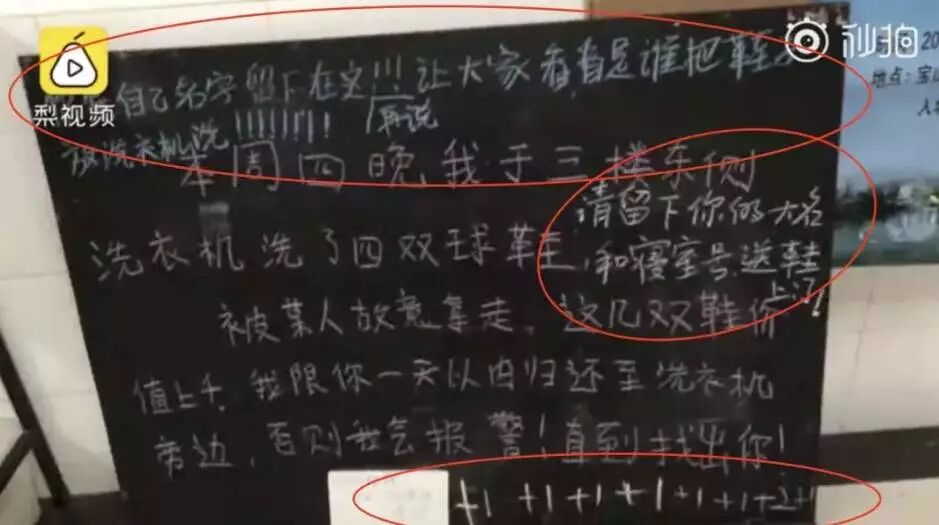 梨视频
秒拍
自己名字留下在这!!!让大家看看是谁把鞋
放洗衣机洗!!!!!!!!
再说
本周四晚我于三楼东侧
洗衣机洗了四双球鞋,
请留下你的大名
和寝室号,送鞋
上门!
被某人故意拿走,这几双鞋价
值上千,我限你一天以内归还至洗衣机
旁边,否则我会报警!直到找出你!
+1 +1 +1 +1 +1 +1 +2 +1
20
地点:宝山